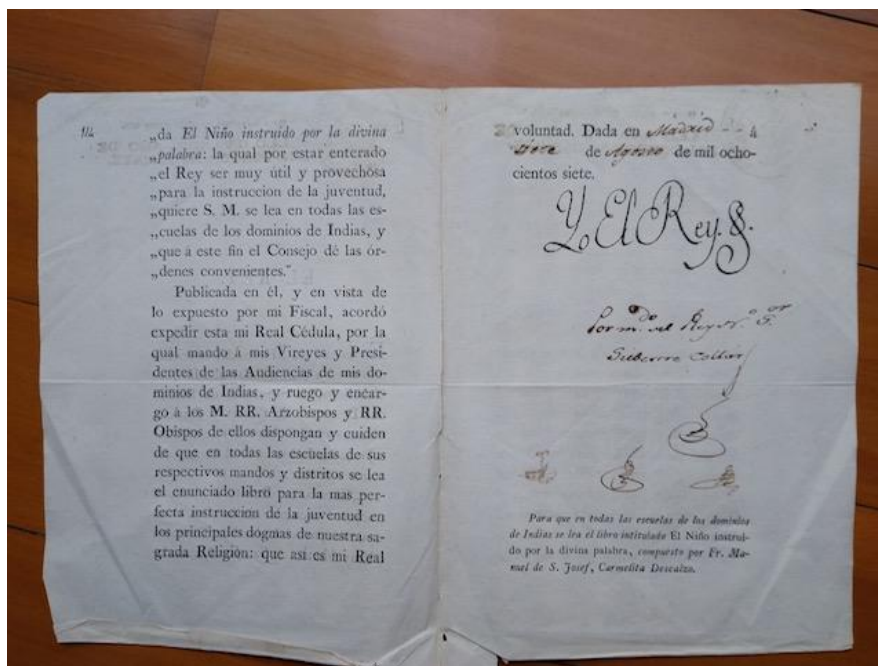 „da El Niño instruido por la divina
„palabra: la qual por estar enterado
„el Rey ser muy útil y provechosa
„para la instruccion de la juventud,
„quiere S. M. se lea en todas las es-
„cuelas de los dominios de Indias, y
„que á este fin el Consejo dé las ór-
„denes convenientes."
Publicada en él, y en vista de
lo expuesto por mi Fiscal, acordó
expedir esta mi Real Cédula, por la
qual mando á mis Vireyes y Presi-
dentes de las Audiencias de mis do-
minios de Indias, y ruego y encar-
go á los M. RR. Arzobispos y RR.
Obispos de ellos dispongan y cuiden
de que en todas las escuelas de sus
respectivos mandos y distritos se lea
el enunciado libro para la mas per-
fecta instruccion de la juventud en
los principales dogmas de nuestra sa-
grada Religion: que así es mi Real
voluntad. Dada en Madrid -- á
siete de Agosto de mil ocho-
cientos siete.
Yo El Rey.
Por m.do del Rey N.o S.or
Silvestre Collar
Para que en todas las escuelas de los dominios
de Indias se lea el libro intitulado El Niño instrui-
do por la divina palabra, compuesto por Fr. Ma-
nuel de S. Josef, Carmelita Descalzo.